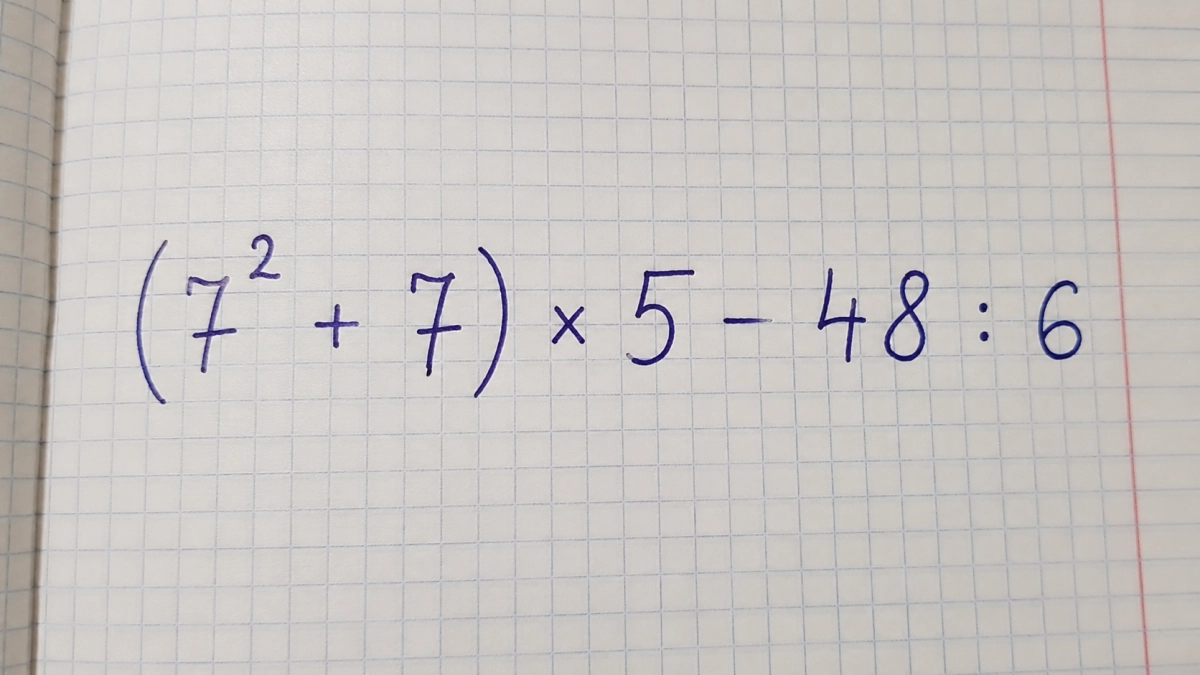 (7² + 7) × 5 − 48 : 6